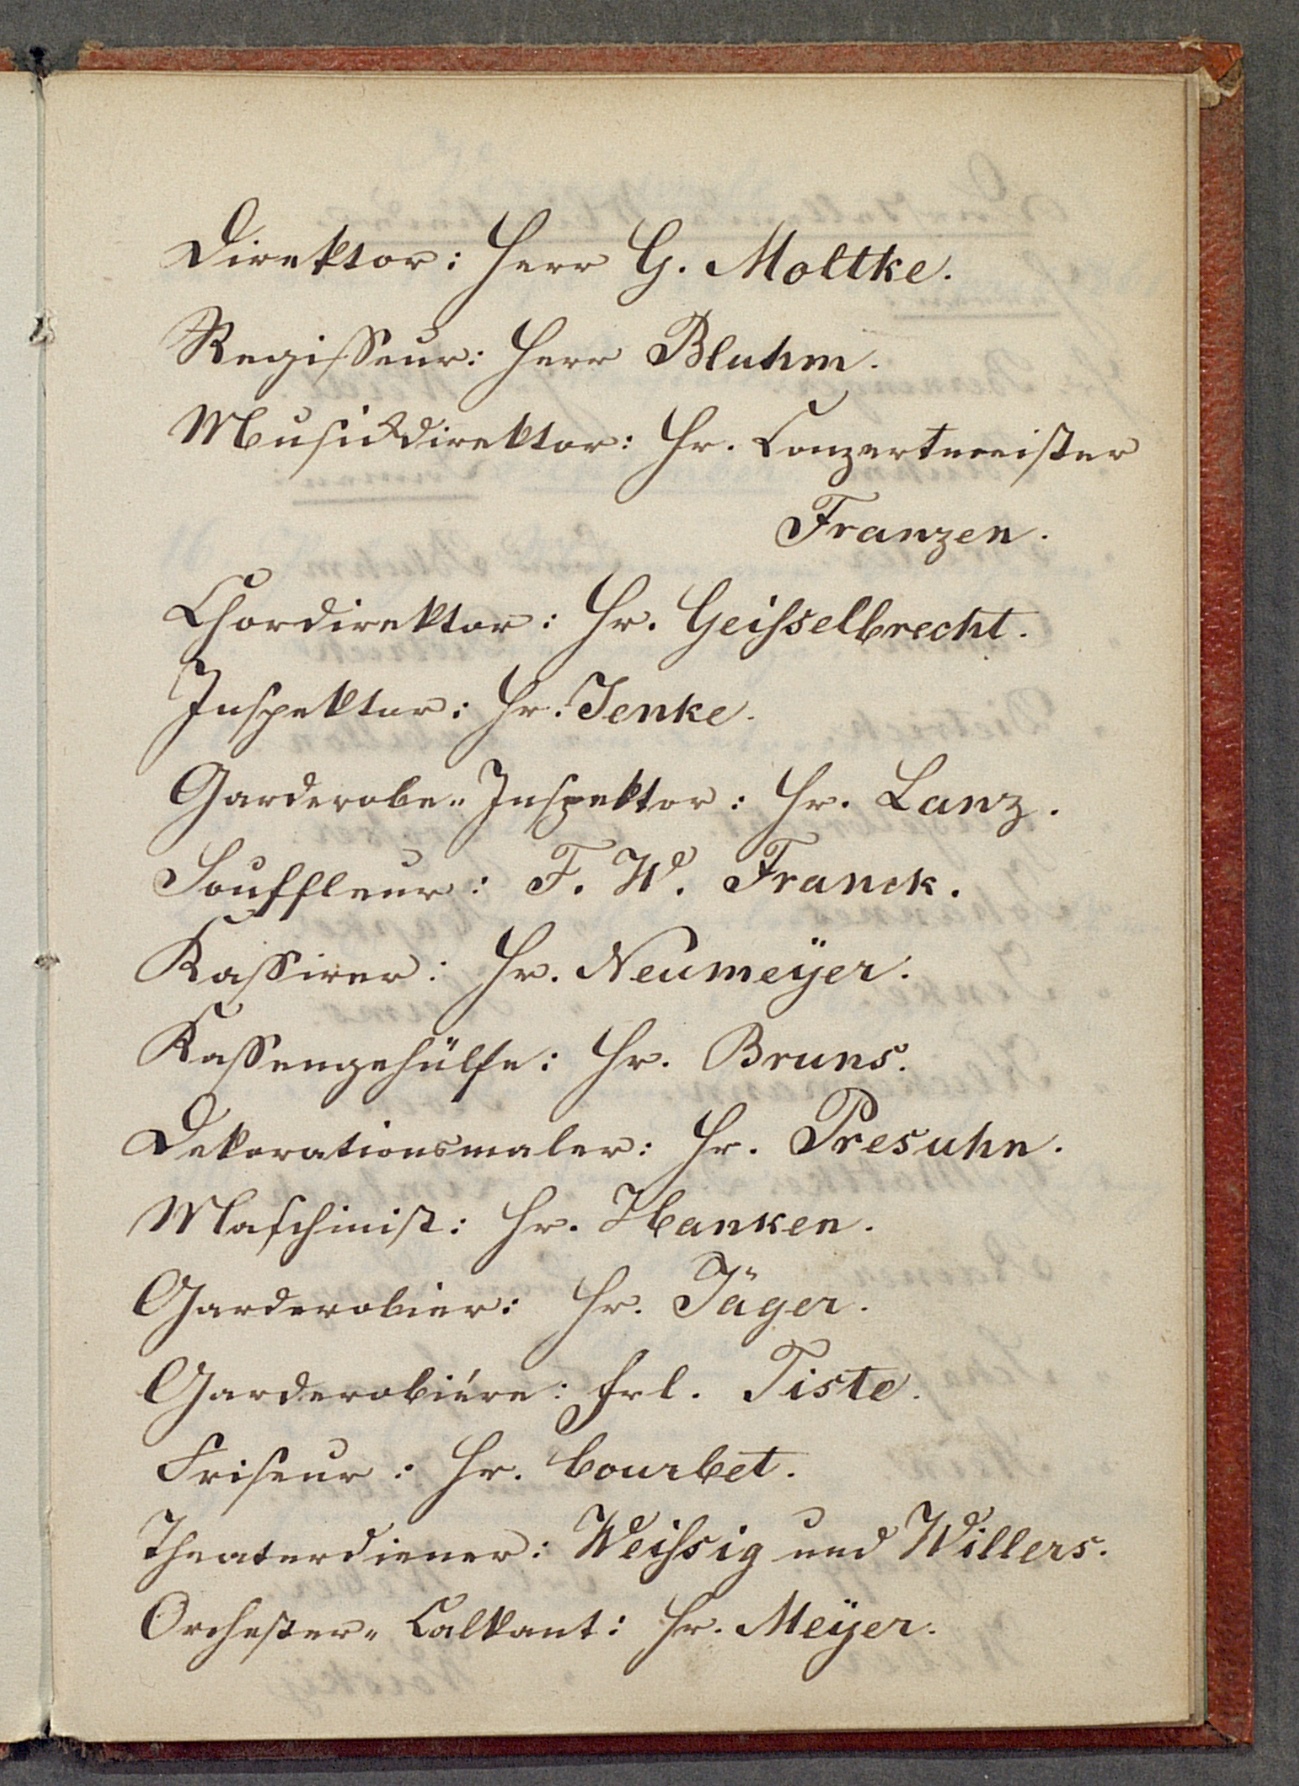 Direktor: Herr G. Moltke.
Regisseur: Herr Bluhm.
Musikdirektor: Hr. Conzertmeister
Franzen.
Chordirektor: Hr. Geisselbrecht.
Inspektor: Hr. Jenke.
Garderobe-Inspektor: Hr. Lanz.
Souffleur: F. W. Franck.
Kassirer: Hr. Neumeÿer.
Kassengehülfe: Hr. Bruns.
Dekorationsmaler: Hr. Presuhn.
Maschinist: Hr. Hanken.
Garderobier: Hr. Jäger.
Garderobiére: Frl. Tiste.
Friseur: Hr. Courbet.
Theaterdiener: Weissig und Willers.
Orchester-Calkant: Hr. Meÿer.